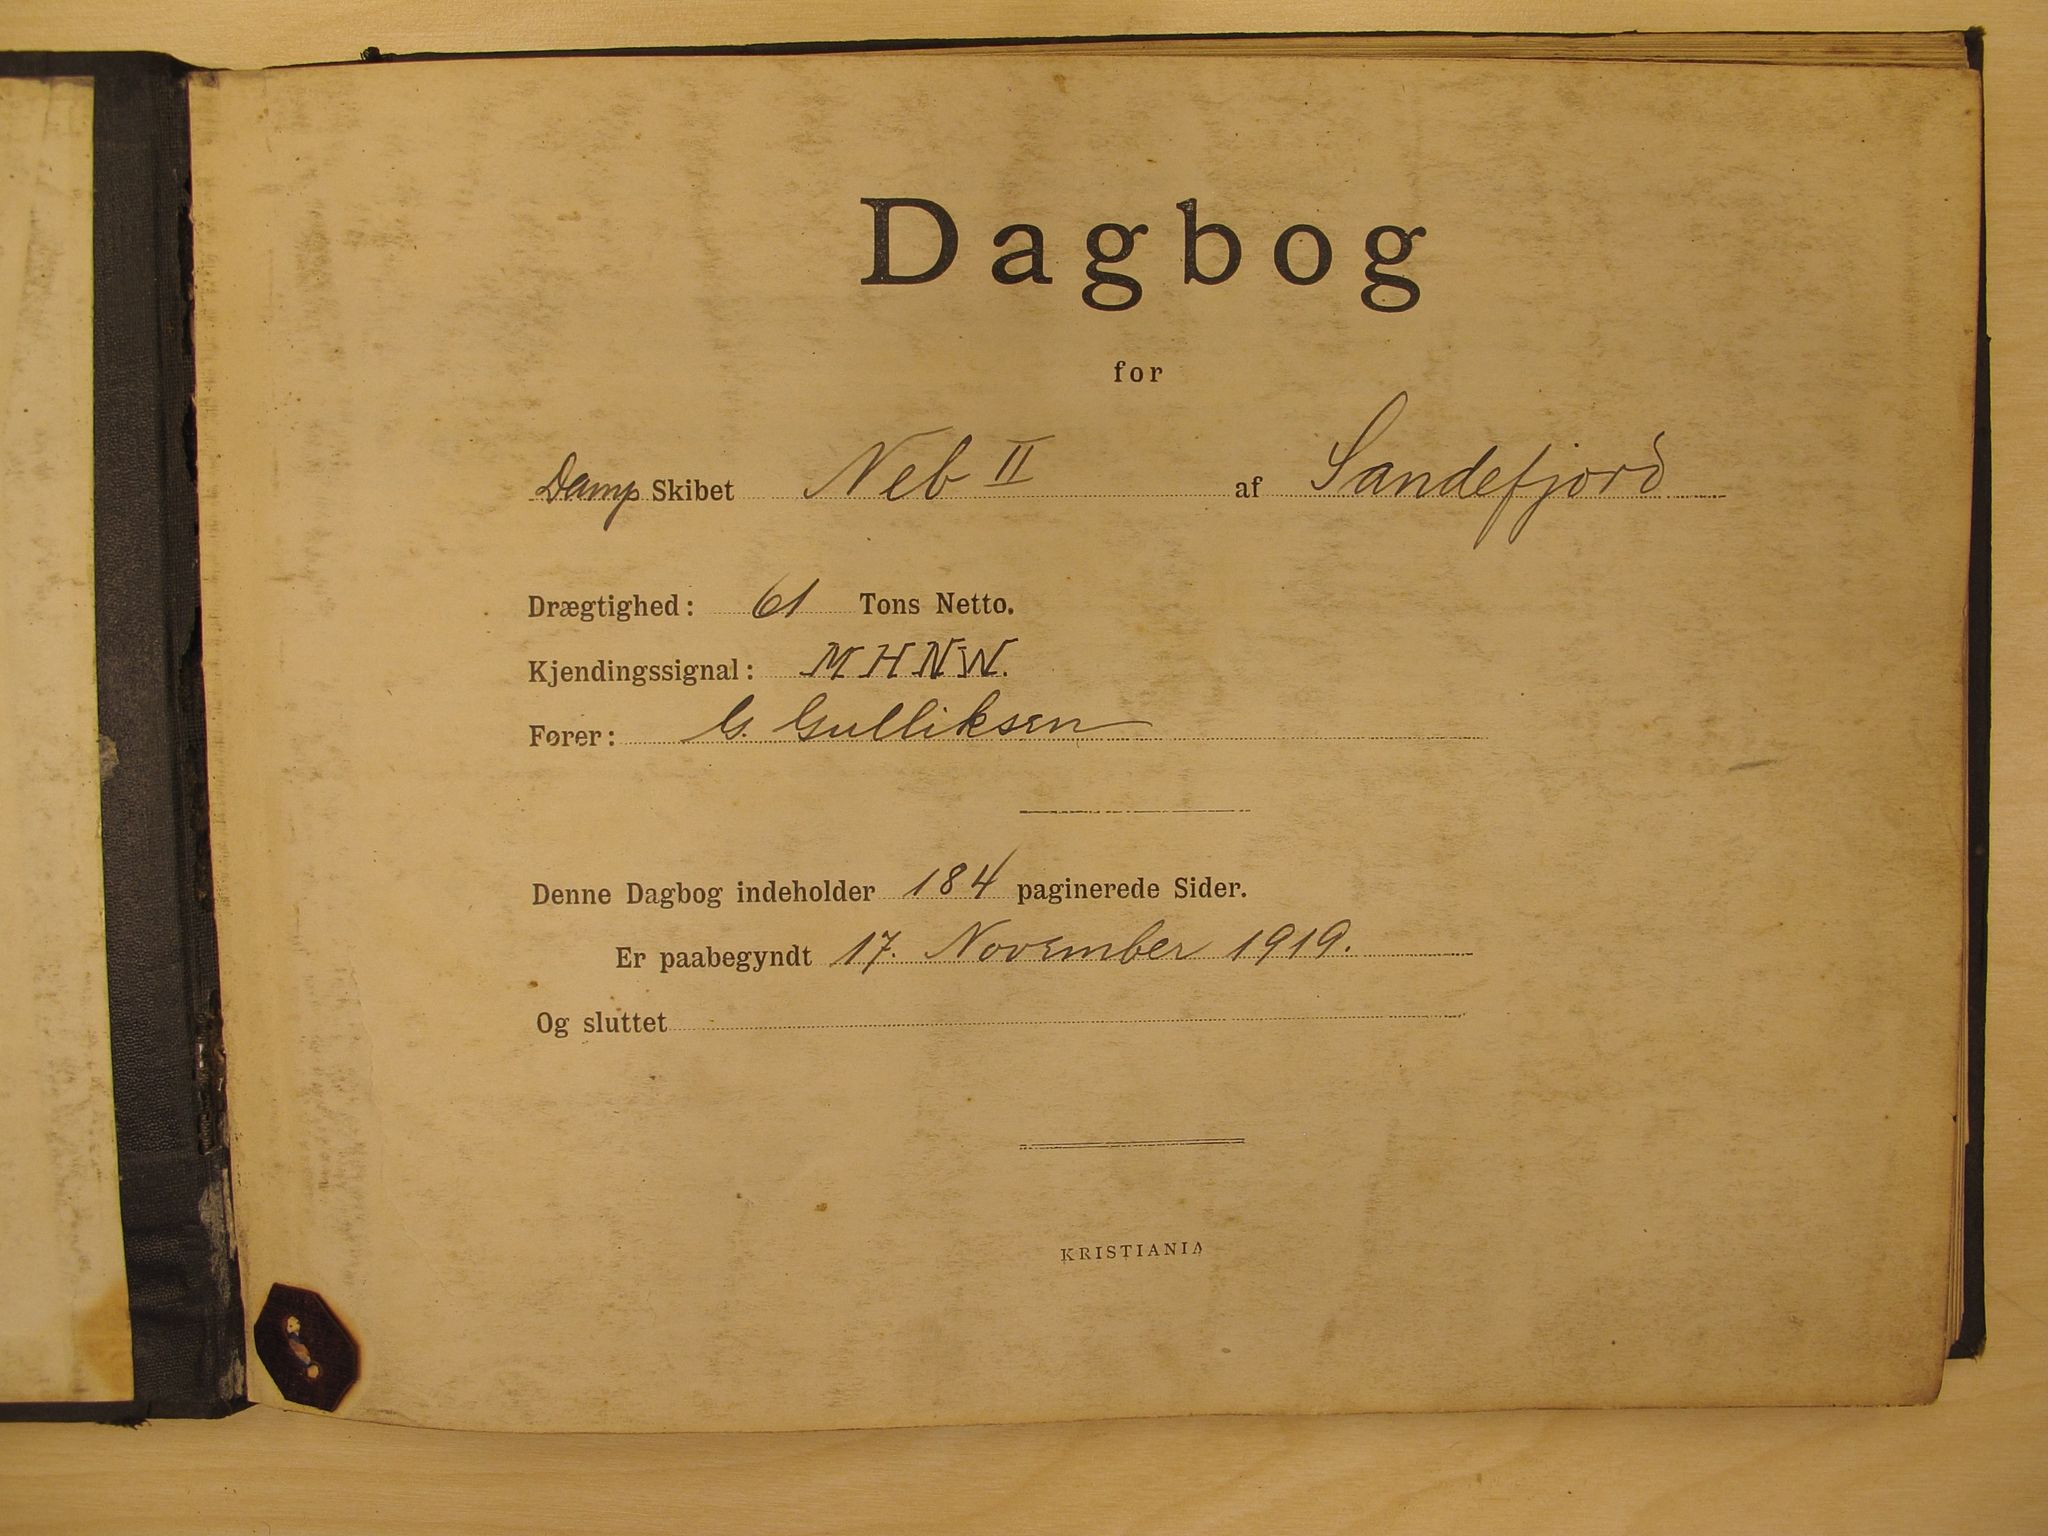 Dagbog
for
Damp Skibet Neb II af Sandefjord
Drægtighed: 61 Tons Netto.
Kjendingssignal: MHNW.
Fører: G. Gulliksen
Denne Dagbog indeholder 184 paginerede Sider.
Er paabegyndt 17. November 1919.
Og sluttet
KRISTIANIA